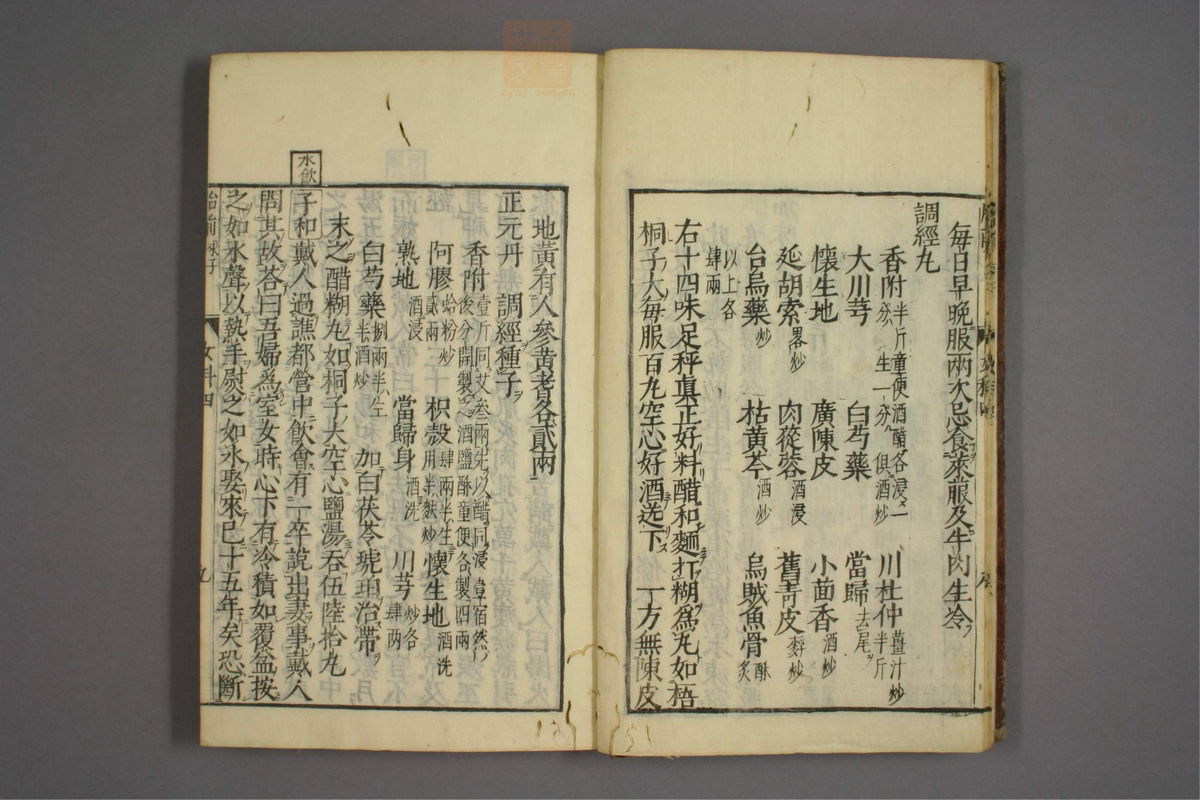 每日早晚服兩次忌食萊菔及牛肉生冷
調經丸
香附半斤童便酒醋各浸一分生一分俱酒炒 川杜仲薑汁炒半斤
大川芎 白芍藥 當歸去尾
懷生地 廣陳皮 小茴香酒炒
延胡索畧炒 肉蓯蓉酒浸 舊青皮麩炒
台烏藥炒 枯黃芩酒炒 烏賊魚骨酥炙
以上各肆兩
右十四味足秤真正好料醋和麵打糊為丸如梧
桐子大每服百丸空心好酒送下 一方無陳皮
地黃有人參黃耆各貳兩
正元丹 調經種子
香附壹斤同艾叁兩先以醋同浸壹宿然後分開製之酒鹽酥童便各製四兩
阿膠蛤粉炒貳兩 枳殼肆兩半生用半麩炒 懷生地酒洗
熟地酒浸 當歸身酒洗 川芎炒各肆两
白芍藥捌兩半生半酒炒 加白茯苓琥珀治帶
末之醋糊丸如桐子大空心鹽湯吞伍陸拾丸
水飲
子和戴人過譙都營中飲會有一卒說出妻事戴人
問其故答曰吾婦為室女時心下有冷積如覆盆按
之如水聲以熱手熨之如氷娶來已十五年矣恐斷
胎前 女科四 九